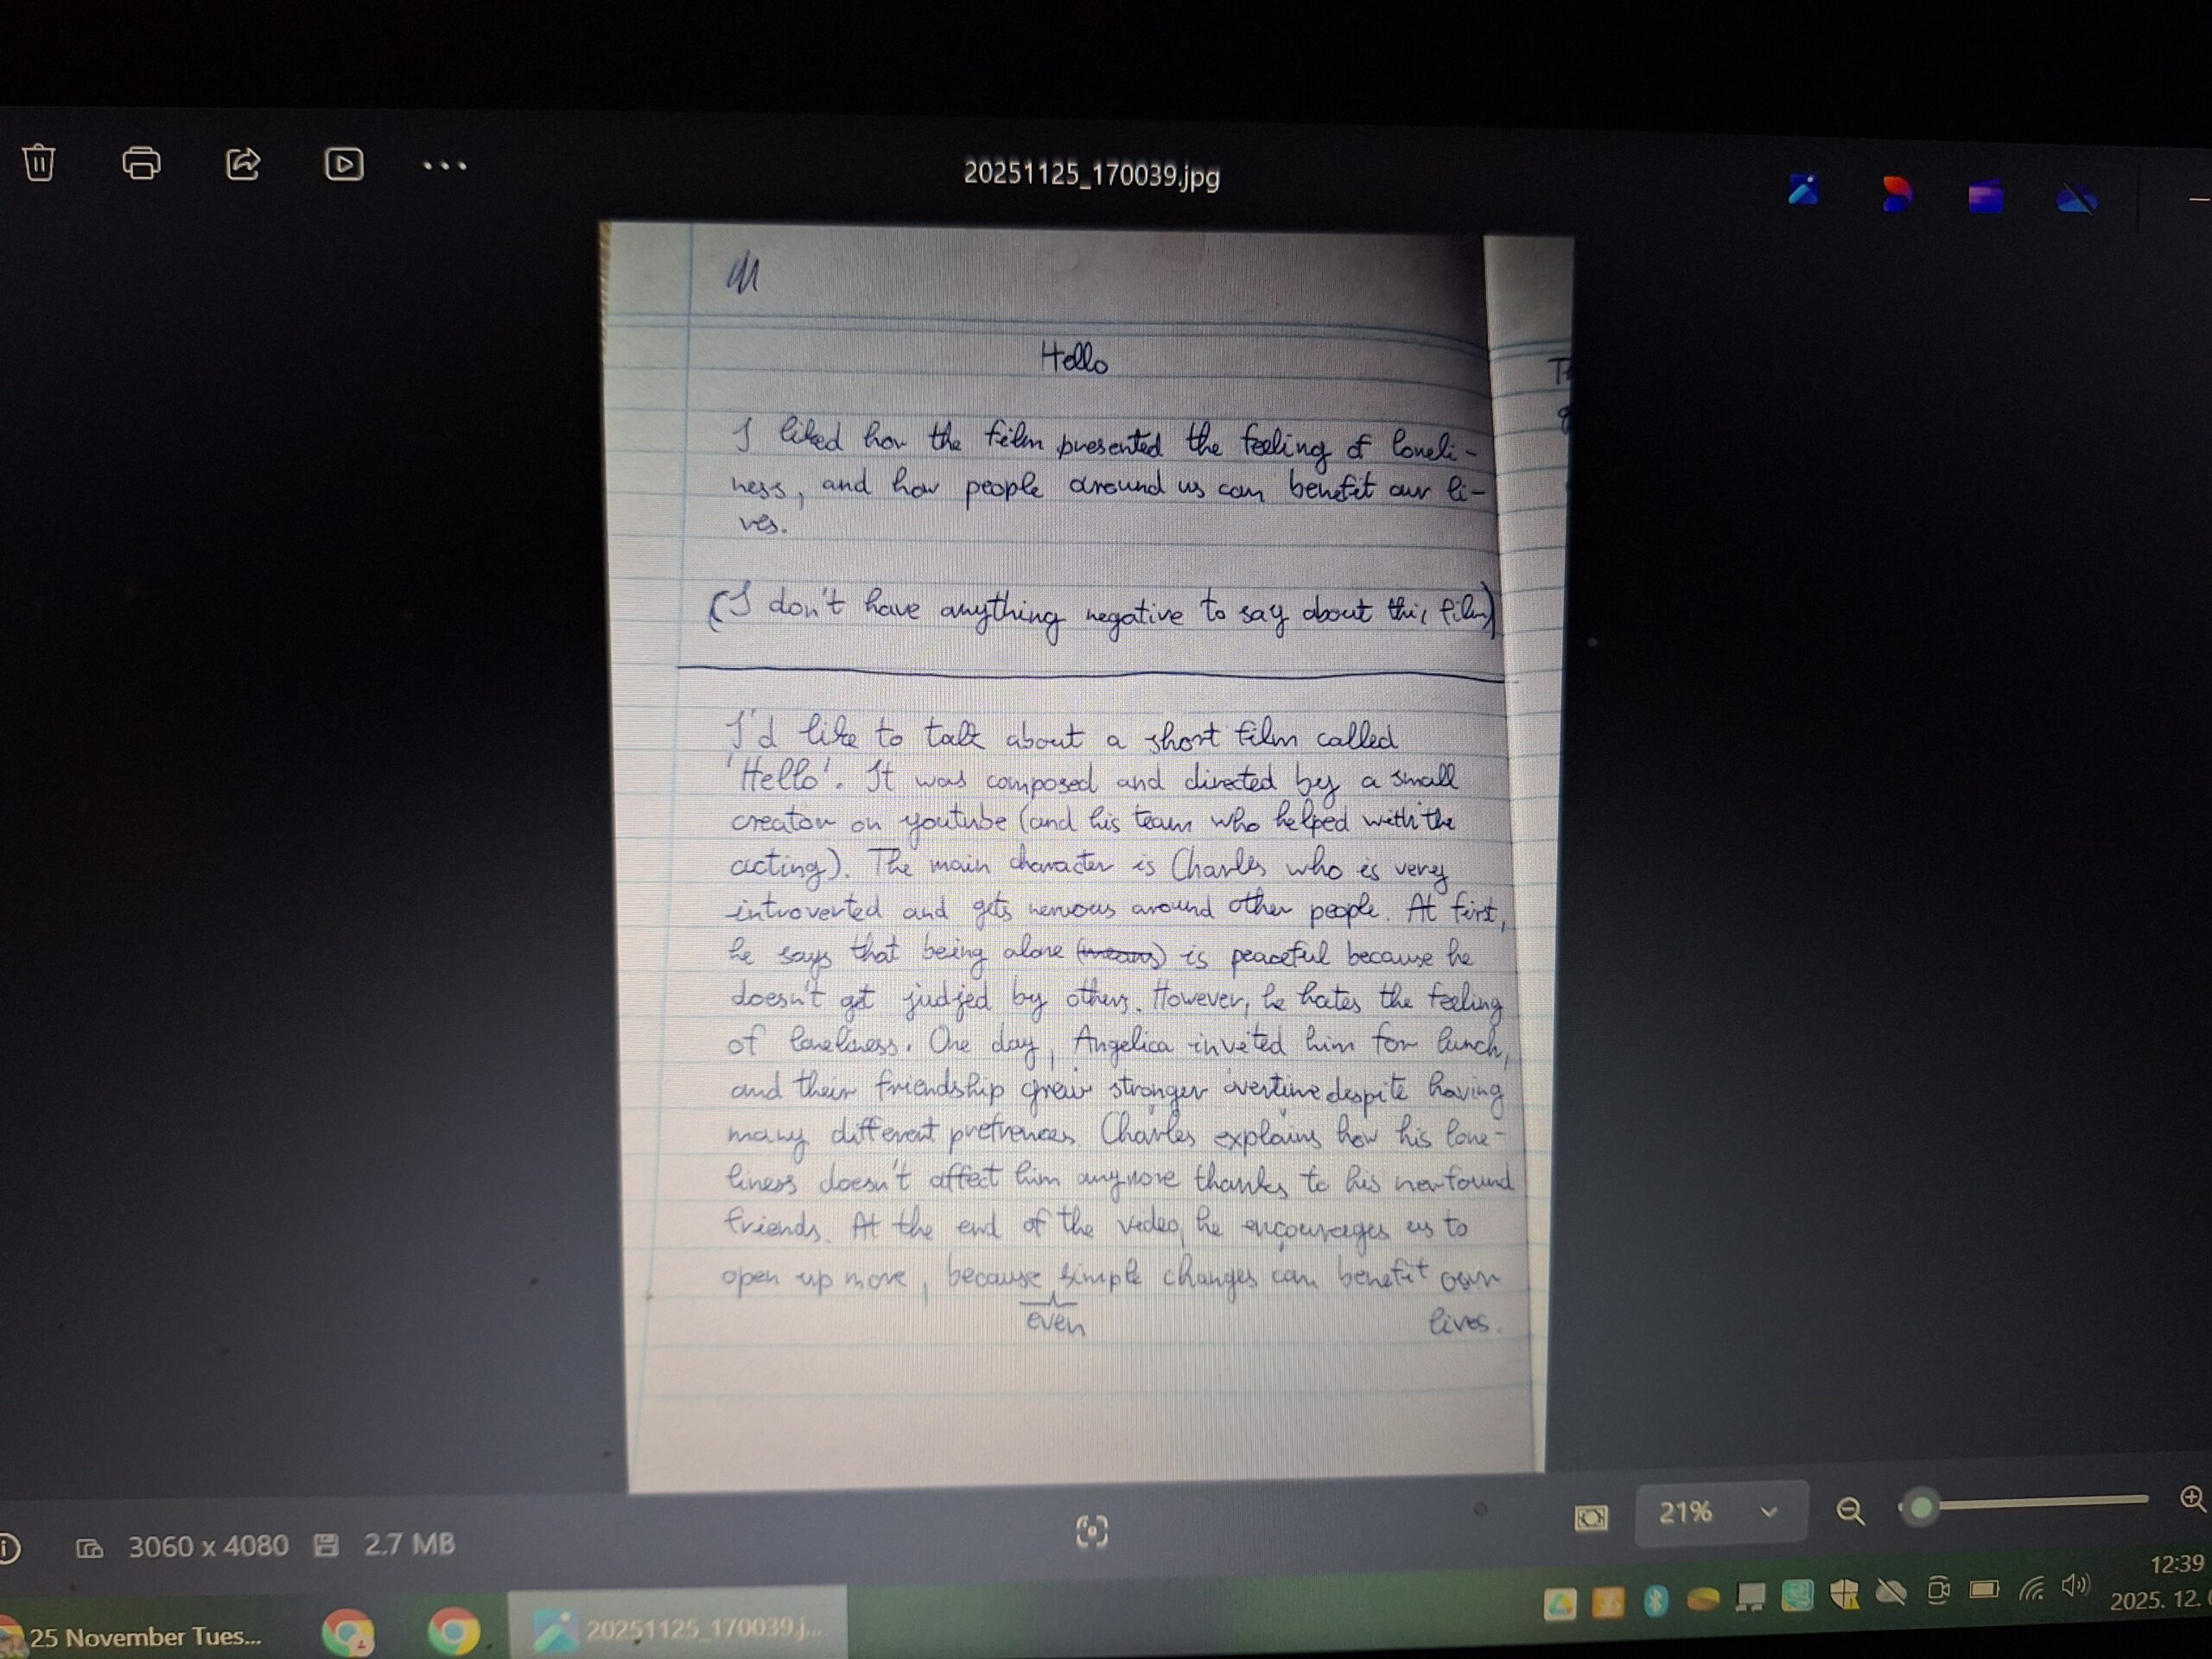 20251125_170039.jpg
Hello
I liked how the film presented the feeling of loneli-
ness, and how people around us can benefit our li-
ves.
(I don't have anything negative to say about this film)
I'd like to talk about a short film called
'Hello'. It was composed and directed by a small
creator on youtube (and his team who helped with the
acting). The main character is Charles who is very
introverted and gets nervous around other people. At first,
he says that being alone (means) is peaceful because he
doesn't get judjed by others. However, he hates the feeling
of loneliness. One day, Angelica invited him for lunch,
and their friendship grew stronger overtime despite having
many different prefrences. Charles explains how his lone-
liness doesn't affect him anymore thanks to his newfound
friends. At the end of the video, he encourages us to
open up more, because simple changes can benefit our
even lives.
21%
3060 x 4080 2.7 MB
12:39
2025. 12.
25 November Tues...
20251125_170039.j...